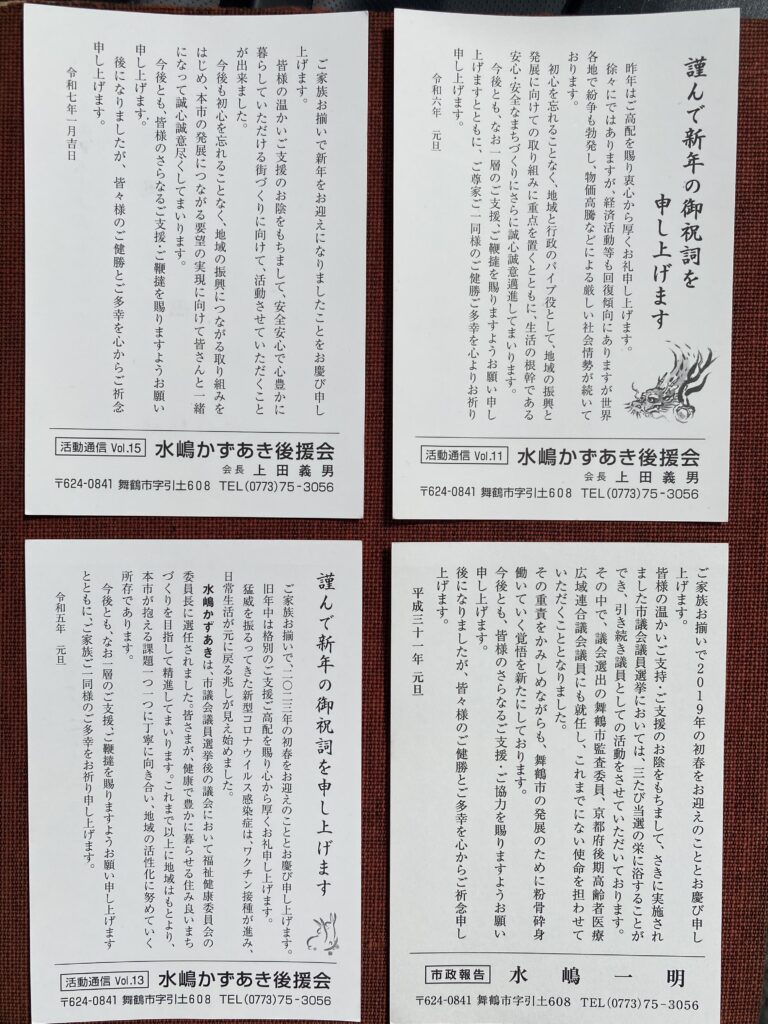 ご家族お揃いで新年をお迎えになりましたことをお慶び申し
上げます。
皆様の温かいご支援のお陰をもちまして、安全安心で心豊かに
暮らしていただける街づくりに向けて、活動させていただくこと
が出来ました。
今後も初心を忘れることなく、地域の振興につながる取り組みを
はじめ、本市の発展につながる要望の実現に向けて皆さんと一緒
になって誠心誠意尽くしてまいります。
今後とも、皆様のさらなるご支援・ご鞭撻を賜りますようお願い
申し上げます。
後になりましたが、皆々様のご健勝とご多幸を心からご祈念
申し上げます。
令和七年一月吉日
活動通信 Vol.15 水嶋かずあき後援会
会長 上田義男
〒624-0841 舞鶴市字引土608 TEL(0773)75-3056
謹んで新年の御祝詞を
申し上げます
昨年はご高配を賜り衷心から厚くお礼申し上げます。
徐々にではありますが、経済活動等も回復傾向にありますが世界
各地で紛争も勃発し、物価高騰などによる厳しい社会情勢が続いて
おります。
初心を忘れることなく、地域と行政のパイプ役として、地域の振興と
発展に向けての取り組みに重点を置くとともに、生活の根幹である
安心・安全なまちづくりにさらに誠心誠意邁進してまいります。
今後とも、なお一層のご支援、ご鞭撻を賜りますようお願い申し
上げますとともに、ご尊家ご一同様のご健勝とご多幸を心よりお祈り
申し上げます。
令和六年 元旦
活動通信 Vol.11 水嶋かずあき後援会
会長 上田義男
〒624-0841 舞鶴市字引土608 TEL(0773)75-3056
謹んで新年の御祝詞を申し上げます
ご家族お揃いで、二〇二三年の初春をお迎えのこととお慶び申し上げます。
旧年中は格別のご支援ご高配を賜り心から厚くお礼申し上げます。
猛威を振るってきた新型コロナウイルス感染症は、ワクチン接種が進み、
日常生活が元に戻る兆しが見え始めました。
水嶋かずあきは、市議会議員選挙後の議会において福祉健康委員会の
委員長に選任されました。皆さまが、健康で豊かに暮らせる住み良いまち
づくりを目指して精進してまいります。これまで以上に地域はもとより、
本市が抱える課題一つ一つに丁寧に向き合い、地域の活性化に努めていく
所存であります。
今後とも、なお一層のご支援、ご鞭撻を賜りますようお願い申し上げます
とともに、ご家族ご一同様のご多幸をお祈り申し上げます。
令和五年 元旦
活動通信 Vol.13 水嶋かずあき後援会
〒624-0841 舞鶴市字引土608 TEL(0773)75-3056
ご家族お揃いで2019年の初春をお迎えのこととお慶び申し
上げます。
皆様の温かいご支持・ご支援のお陰をもちまして、さきに実施され
ました市議会議員選挙においては、三たび当選の栄に浴することが
でき、引き続き議員としての活動をさせていただいております。
その中で、議会選出の舞鶴市監査委員、京都府後期高齢者医療
広域連合議会議員にも就任し、これまでにない使命を担わせて
いただくこととなりました。
その重責をかみしめながらも、舞鶴市の発展のために粉骨砕身
働いていく覚悟を新たにしております。
今後とも、皆様のさらなるご支援・ご協力を賜りますようお願い
申し上げます。
後になりましたが、皆々様のご健勝とご多幸を心からご祈念申し
上げます。
平成三十一年 元旦
市政報告 水嶋一明
〒624-0841 舞鶴市字引土608 TEL(0773)75-3056